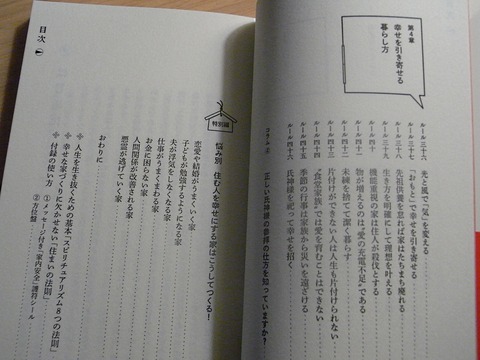 第4章
幸せを引き寄せる
暮らし方
ルール三十六 光と風で「気」を変える
ルール三十七 「おもと」で幸せを引き寄せる
ルール三十八 先祖供養を怠れば家はたちまち廃れる
ルール三十九 生き方を明確にして理想を叶える
ルール四十 機能重視の家は住人が殺伐とする
ルール四十一 物が増えるのは“愛の充電不足”である
ルール四十二 未練を捨てて潔く暮らす
ルール四十三 片付けができない人は人生も片付けられない
ルール四十四 “食堂家族”では愛を育むことはできない
ルール四十五 季節の行事は家族から災いを遠ざける
ルール四十六 氏神様を祀って幸せを招く
コラム④ 正しい氏神様の参拝の仕方を知っていますか?
特別編
悩み別 住む人を幸せにする家はこうしてつくる!
恋愛や結婚がうまくいく家
子どもが勉強するようになる家
夫が浮気をしなくなる家
仕事がうまくまわる家
お金に困らない家
人間関係が改善される家
悪霊が逃げていく家
おわりに
人生を生き抜くための基本“スピリチュアリズム8つの法則”
幸せな家づくりに欠かせない「住まいの法則」
付録の使い方
①メッセージ付き「家内安全」護符シール
②方位盤
目次